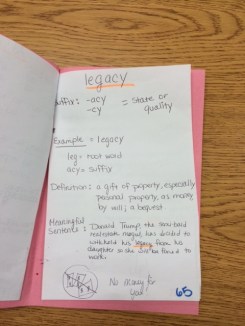 legacy
suffix: -acy = State or
-cy quality
Example = legacy
leg = root word
acy = suffix
Definition: a gift of property, especially
personal property, as money,
by will; a bequest
Meaningful
Sentence: Donald Trump, the
real estate mogul, has decided to
withhold his legacy from his
daughter so she will be forced to
work.
No money for
you
65